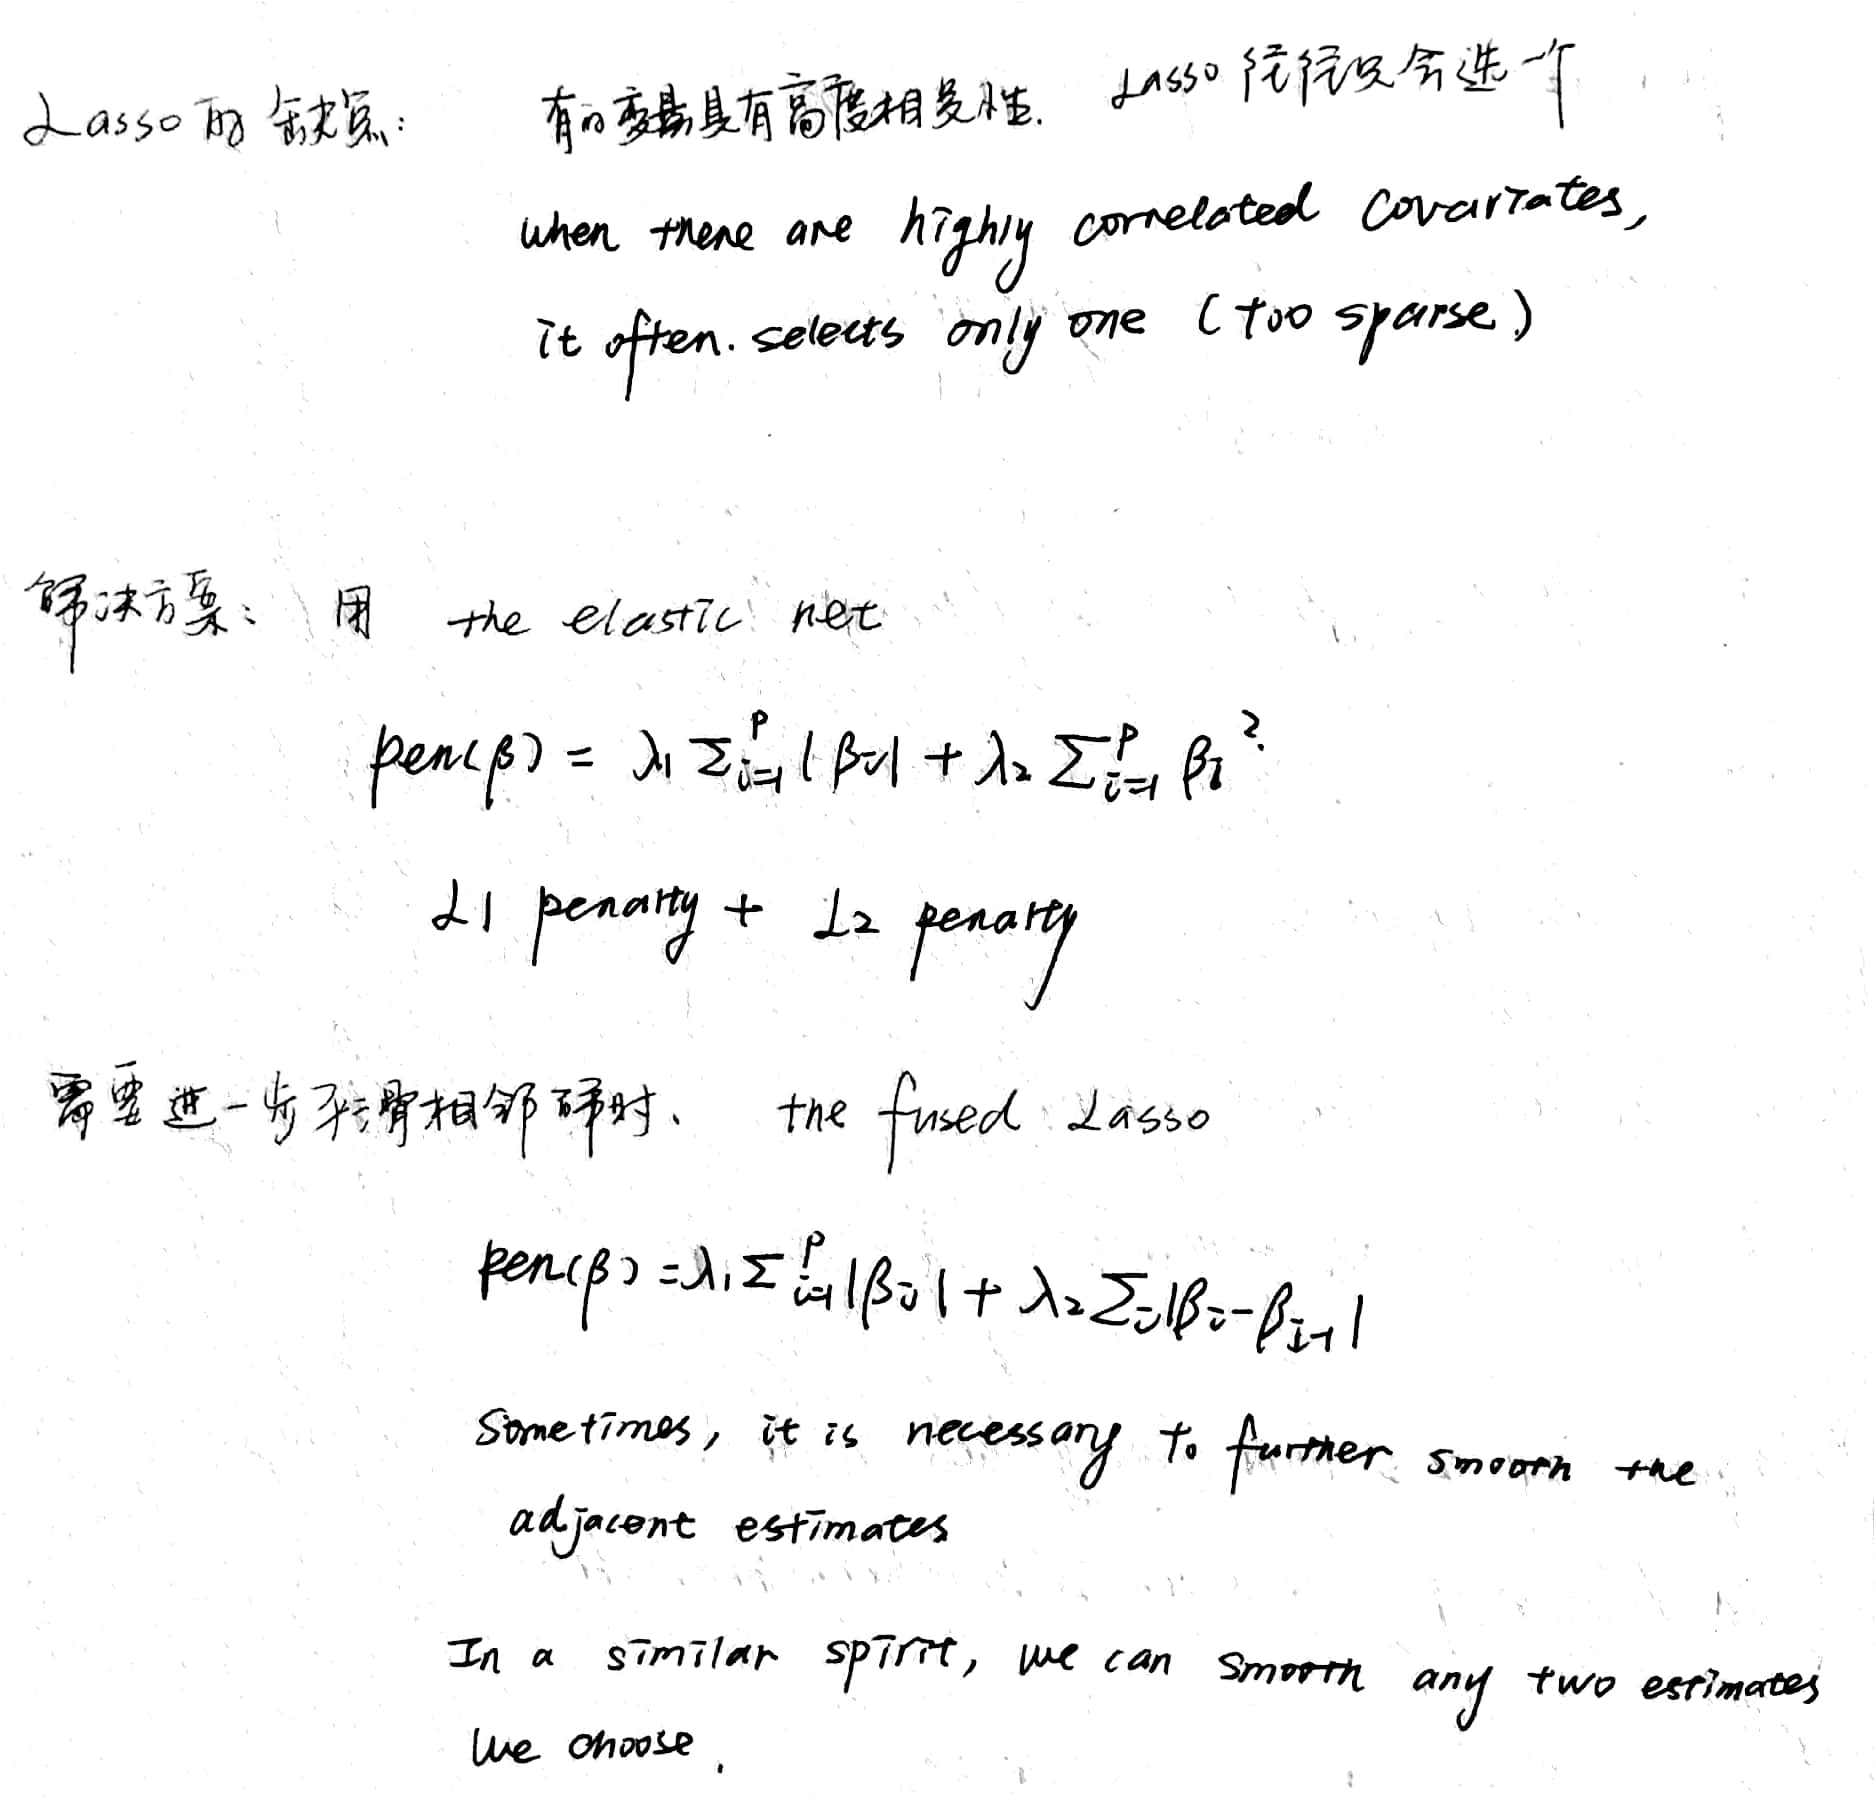 Lasso的缺点: 有的变量具有高度相关性. Lasso往往只会选一个
when there are highly correlated covariates,
it often. selects only one (too sparse)
解决方案: 用 the elastic net
pen(β) = λ₁ Σᵢ₌₁ᵖ |βᵢ| + λ₂ Σᵢ₌₁ᵖ βᵢ²
L1 penalty + L2 penalty
需要进一步平滑相邻 时、 the fused Lasso
pen(β) = λ₁ Σᵢ₌₁ᵖ |βᵢ| + λ₂ Σᵢ |βᵢ - βᵢ₋₁|
Sometimes, it is necessary to further smooth the
adjacent estimates
In a similar spirit, we can smooth any two estimates
we choose.